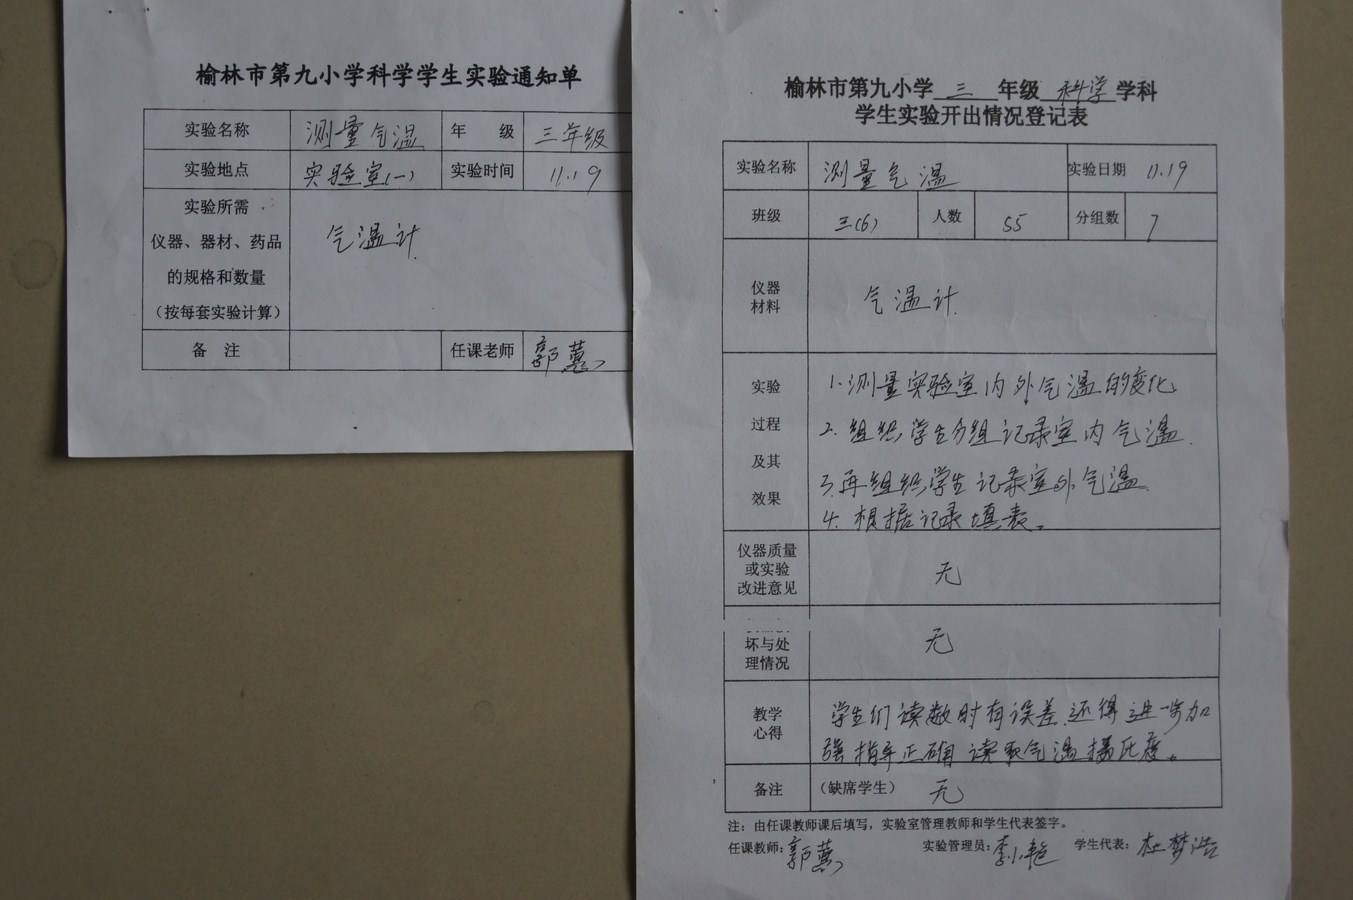 榆林市第九小学科学学生实验通知单
实验名称 测量气温 年 级 三年级
实验地点 实验室(一) 实验时间 11.19
实验所需
仪器、器材、药品
的规格和数量
（按每套实验计算）
气温计
备 注 任课老师 郭
榆林市第九小学 三 年级 科学 学科
学生实验开出情况登记表
实验名称 测量气温 实验日期 11.19
班级 三(6) 人数 55 分组数 7
仪器
材料
气温计
实验
过程
及其
效果
1.测量实验室内外气温的变化
2.组织学生分组记录室内气温.
3.再组织学生记录室外气温。
4.根据记录填表。
仪器质量
或实验
改进意见
无
坏与处
理情况
无
教学
心得
学生们读数时有误差.还得进一步加
强指导正确读取气温摄氏度。
备注 （缺席学生） 无
注：由任课教师课后填写，实验室管理教师和学生代表签字。
任课教师: 郭 实验管理员: 李小艳 学生代表: 杜梦浩